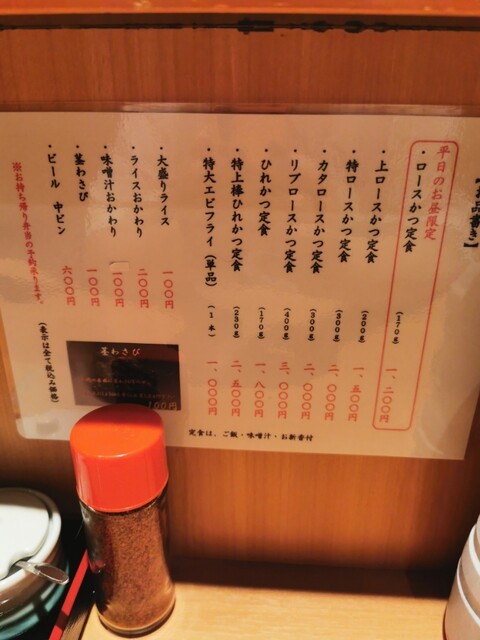 【お品書き】
平日のお昼限定
・ロースかつ定食 (170g) 一、二〇〇円
・上ロースかつ定食 (200g) 一、五〇〇円
・特ロースかつ定食 (300g) 二、〇〇〇円
・カタロースかつ定食 (300g) 二、〇〇〇円
・リブロースかつ定食 (400g) 三、〇〇〇円
・ひれかつ定食 (170g) 一、八〇〇円
・特上棒ひれかつ定食 (230g) 二、五〇〇円
・特大エビフライ(単品) (1本) 一、〇〇〇円
定食は、ご飯・味噌汁・お新香付
・大盛りライス 一〇〇円
・ライスおかわり 二〇〇円
・味噌汁おかわり 一〇〇円
・茎わさび 一〇〇円
・ビール 中ビン 六〇〇円
※お持ち帰り弁当の予約承ります。
(表示は全て税込み価格)
茎わさび
100円